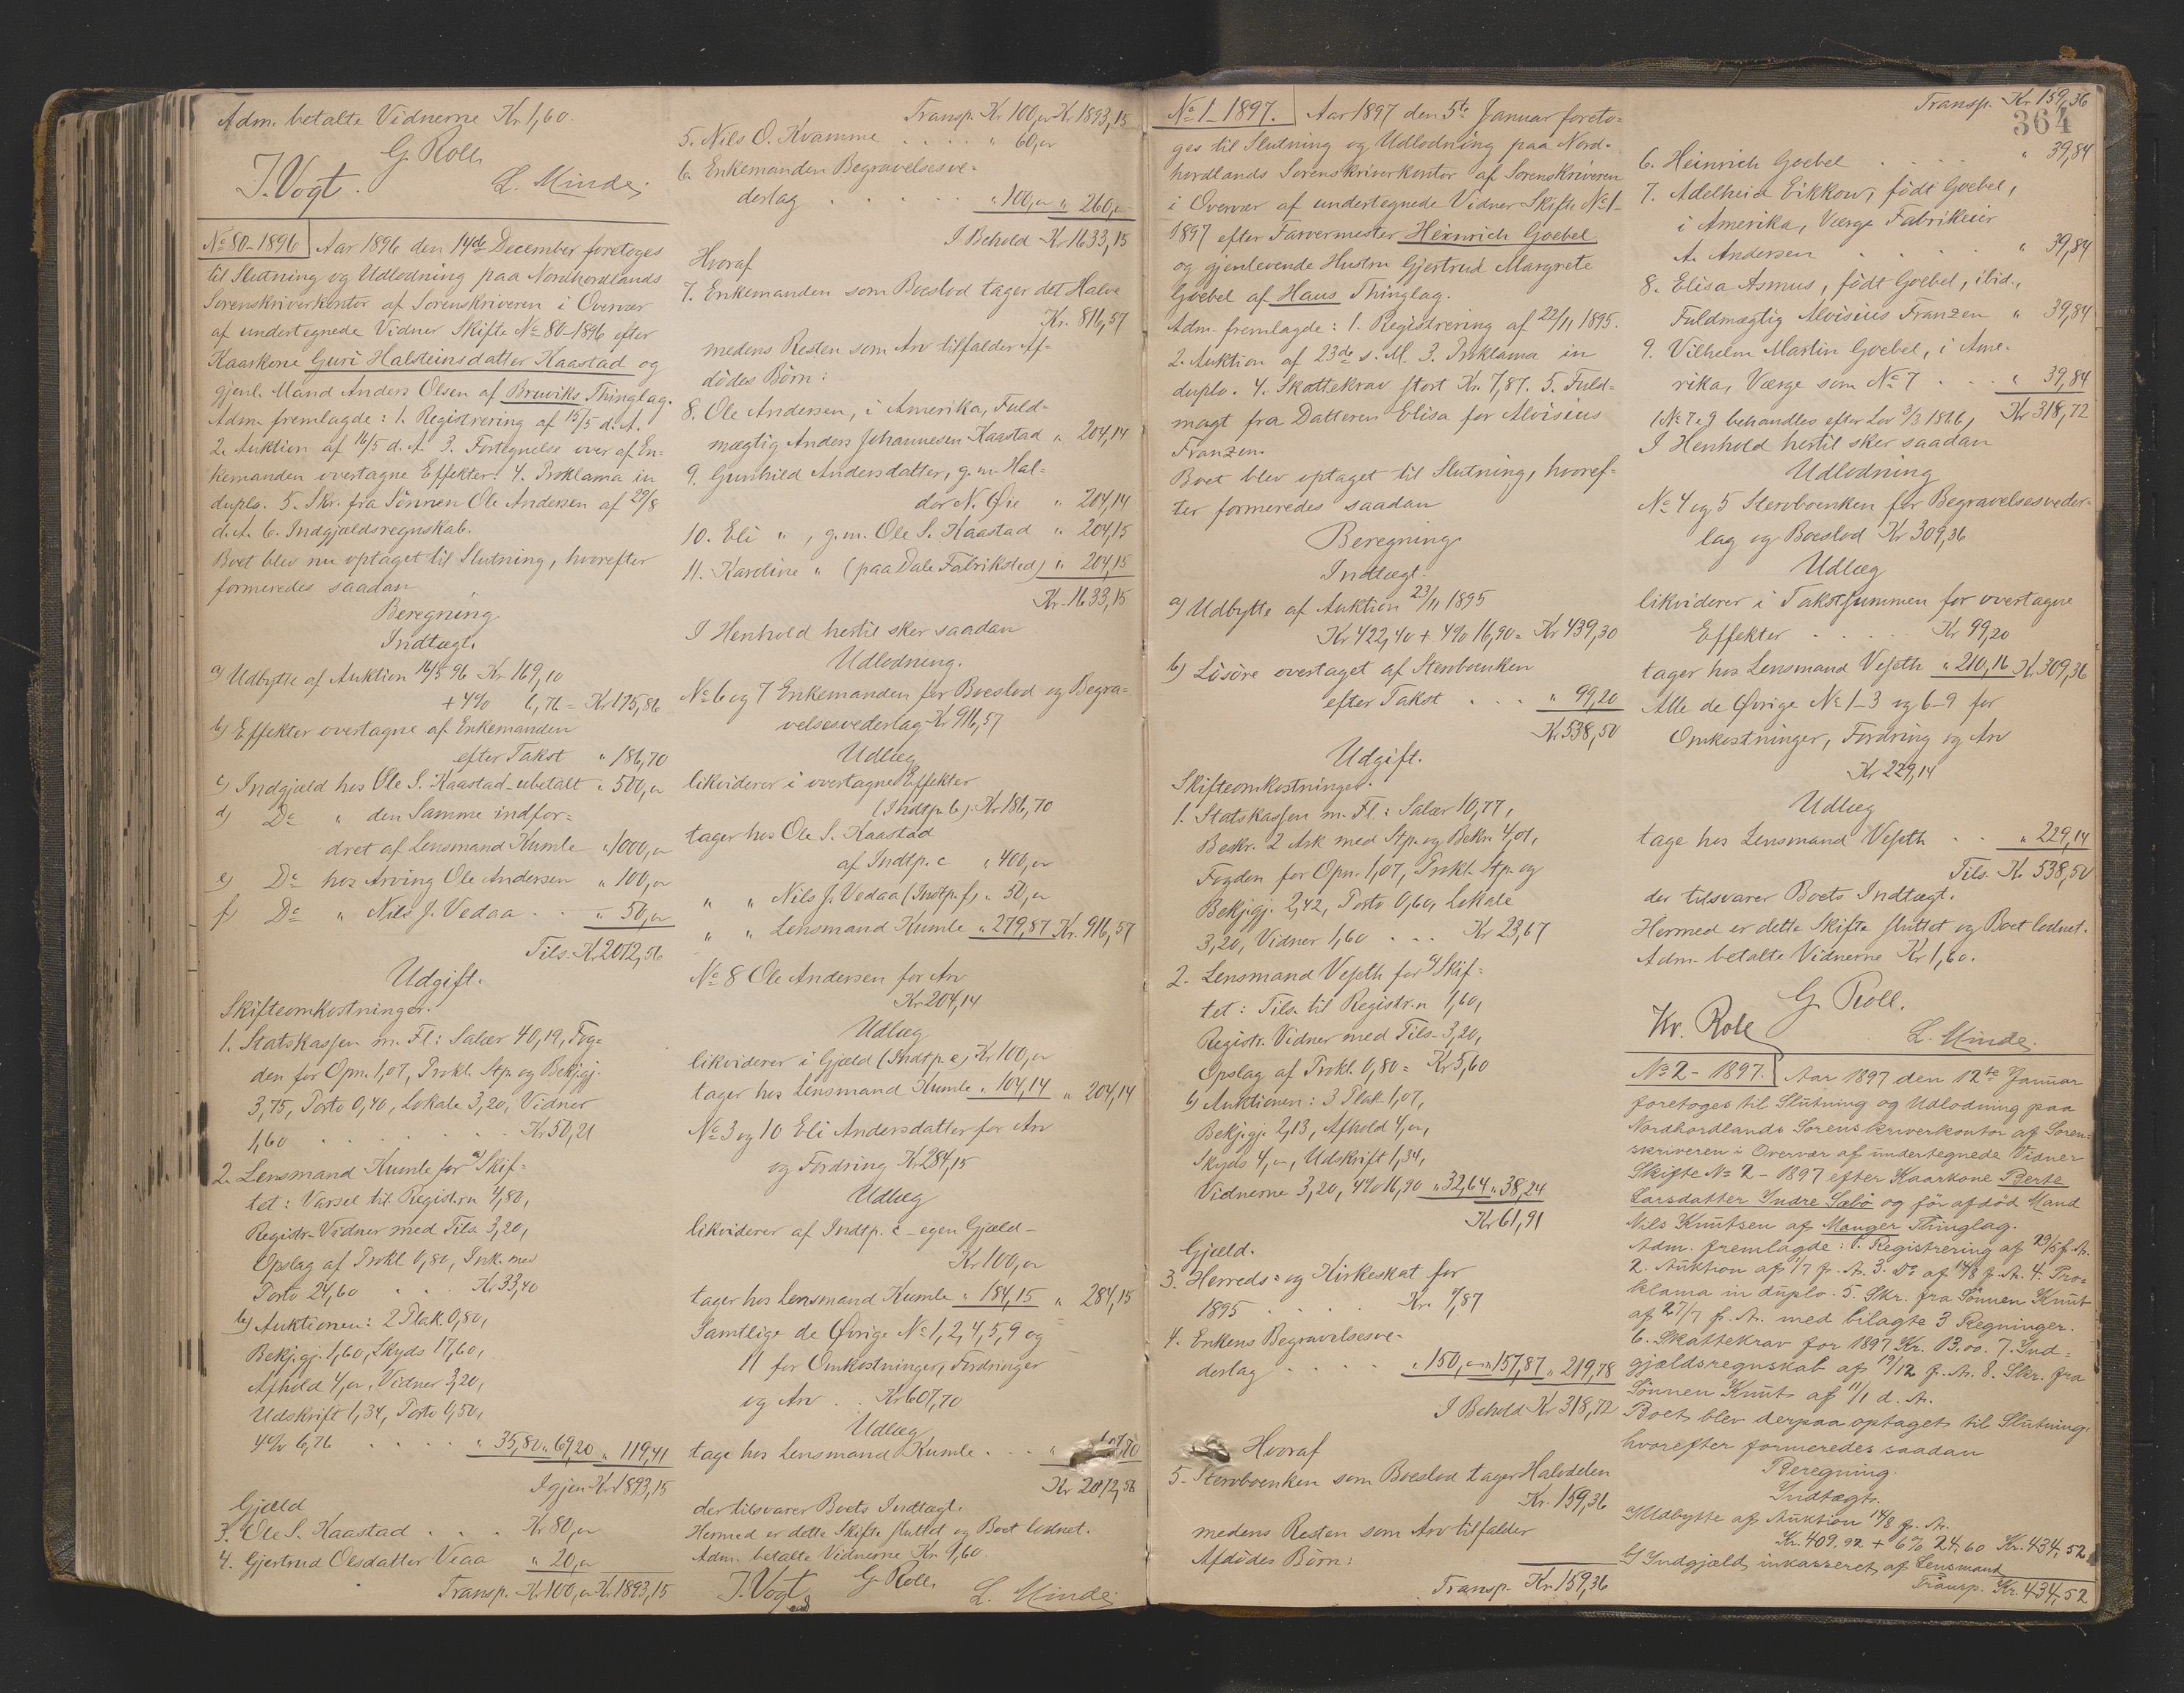 Adm. betalte Vidnerne Kr 1,60.
G Roll.
J. Vogt. L. Minde.
No 80-1896 Aar 1896 den 14de December foretoges
til Slutning og Udlodning paa Nordhordlands
Sorenskriverkontor af Sorenskriveren i Overvær
af undertegnede Vidner Skifte No 80-1896 efter
Kaarkone Guri Halsteinsdatter Kaastad og
gjenl. Mand Anders Olsen af Bruviks Thinglag.
Adm. fremlagde: 1. Registrering af 15/5 d. A.
2. Auktion af 16/5 d. A. 3. Fortegnelse over af En=
kemanden overtagne Effekter. 4. Proklama in
duplo. 5. Skr. fra Sønnen Ole Andersen af 29/8
d. A. 6. Indgjældsregnskab.
Boet blev nu optaget til Slutning, hvorefter
formeredes saadan
Beregning
Indtægt.
a) Udbytte af Auktion 16/5 96 Kr 169,10
+ 4% 6,76 = Kr 175,86
b) Effekter overtagne af Enkemanden
efter Takst " 186,70
c) Indgjæld hos Ole S. Kaastad - ubetalt " 500,00
d) Do " den Samme indfor=
dret af Lensmand Kumle " 1000,00
e) Do hos Arving Ole Andersen " 100,00
f) Do " Nils J. Vedaa . . " 50,00
Tils. Kr 2012,56
Udgift.
Skifteomkostninger.
1. Statskassen m. Fl: Salær 40,19, Fog=
den for Opn. 1,07, Prokl. Stp. og Bekj.gj.
3,75, Porto 0,40, Lokale 3,20, Vidner
1,60 . . . . . . . Kr 50,21
2. Lensmand Kumle for a) Skif=
tet: Varsel til Registr.n 4,80,
Registr. Vidner med Tils. 3,20,
Opslag af Prokl 0,80, Ink. med
Porto 24,60 . . Kr 33,40
b) Auktionen: 2 Plak. 0,80,
Bekj.gj. 1,60, Skyds 17,60,
Afhold 4,00, Vidner 3,20,
Udskrift 1,34, Porto 0,50,
4% 6,76 . . . . " 35,80 " 69,20 " 119,41
Igjen Kr 1893,15
Gjæld
3. Ole S. Kaastad . . . Kr 80,00
4. Gjertrud Olsdatter Veaa " 20,00
Transp. Kr 100,00 Kr 1893,15
Transp. Kr 100,00 Kr 1893,15
5. Nils O. Kvamme . . . . " 60,00
6. Enkemanden Begravelsesve=
derlag . . . . . " 100,00 " 260,00
I Behold Kr 1633,15
Hvoraf
7. Enkemanden som Boeslod tager det Halve
Kr. 816,57
medens Resten som Arv tilfalder Af=
dødes Børn:
8. Ole Andersen, i Amerika, Fuld=
mægtig Anders Johannesen Kaastad " 204,14
9. Gunhild Andersdatter, g. m. Hal=
dor N. Øie " 204,14
10. Eli " , g.m. Ole S. Kaastad " 204,15
11. Karoline " (paa Dale Fabriksted) " 204,15
Kr. 1633,15
I Henhold hertil sker saadan
Udlodning.
No 6 og 7 Enkemanden for Boeslod og Begra=
velsesvederlag Kr 916,57
Udlæg
likviderer i overtagne Effekter
(Indtp. b) Kr 186,70
tager hos Ole S. Kaastad
af Indtp. c " 400,00
" " Nils J. Vedaa (Indtp. f) " 50,00
" " Lensmand Kumle " 279,87 Kr. 916,57
No 8 Ole Andersen for Arv
Kr 204,14
Udlæg
likviderer i Gjæld (Indtp. e) Kr 100,00
tager hos Lensmand Kumle " 104,14 " 204,14
No 3 og 10 Eli Andersdatter for Arv
og Fordring Kr 284,15
Udlæg
likviderer af Indtp. c - egen Gjæld -
Kr 100,00
tager hos Lensmand Kumle " 184,15 " 284,15
Samtlige de Øvrige No 1, 2, 4, 5, 9 og
11 for Omkostninger, Fordringer
og Arv . . Kr 607,70
Udlæg
tage hos Lensmand Kumle . . . "
Kr 2012,56
der tilsvarer Boets Indtægt.
Hermed er dette Skifte sluttet og Boet lodnet.
Adm. betalte Vidnerne Kr 1,60.
J. Vogt G Roll. L. Minde.
No 1 - 1897. Aar 1897 den 5te Januar foreto=
ges til Slutning og Udlodning paa Nord=
hordlands Sorenskriverkontor af Sorenskriveren
i Overvær af undertegnede Vidner Skifte No 1-
1897 efter Farvermester Heinrich Goebel
og gjenlevende Hustru Gjertrud Margrete
Goebel af Haus Thinglag.
Adm. fremlagde: 1. Registrering af 22/11 1895.
2. Auktion af 23de s. M. 3. Proklama in
duplo. 4. Skattekrav stort Kr. 7,87. 5. Fuld=
magt fra Datteren Elisa for Aloisius
Franzen.
Boet blev optaget til Slutning, hvoref=
ter formeredes saadan
Beregning
Indtægt.
a) Udbytte af Auktion 23/11 1895
Kr 422,40 + 4% 16,90 = Kr 439,30
b) Løsøre overtaget af Stervboenken
efter Takst . . . " 99,20
Kr. 538,50
Udgift.
Skifteomkostninger.
1. Statskassen m. Fl.: Salær 10,77,
Beskr. 2 Ark med Stp. og Bekr. 4,01,
Fogden for Opn. 1,07, Prokl. Stp. og
Bekj.gj. 2,42, Porto 0,60, Lokale
3,20, Vidner 1,60 . . . Kr 23,67
2. Lensmand Veseth for a) Skif=
tet: Tils. til Registr.n 1,60,
Registr. Vidner med Tils. 3,20,
Opslag af Prokl. 0,80 = Kr 5,60
b) Auktionen: 3 Plak 1,07,
Bekj.gj. 2,13, Afhold 4,00,
Skyds 4,00, Udskrift 1,34,
Vidnerne 3,20, 4% 16,90 " 32,64 " 38,24
Kr 61,91
Gjæld.
3. Herreds= og Kirkeskat for
1895 . . . . . Kr. 7,87
4. Enkens Begravelsesve=
derlag . . . . " 150,00 " 157,87 " 219,78
I Behold Kr 318,72
Hvoraf
5. Stervboenken som Boeslod tager Halvdelen
Kr. 159,36
medens Resten som Arv tilfalder
Afdødes Børn:
Transp. Kr 159,36
Transp. Kr 159,36
364
6. Heinrich Goebel . . . . " 39,84
7. Adelheid Eikkow, født Goebel,
i Amerika, Værge Fabrikeier
A. Andersen . . . . " 39,84
8. Elisa Asmus, født Goebel, ibid.,
Fuldmægtig Aloisius Franzen " 39,84
9. Vilhelm Martin Goebel, i Ame=
rika, Værge som No 7 . . . " 39,84
Kr 318,72
I Henhold hertil sker saadan
Udlodning
No 4 og 5 Stervboenken for Begravelsesveder=
lag og Boeslod Kr 309,36
Udlæg
likviderer i Takstsummen for overtagne
Effekter . . . . . Kr 99,20
tager hos Lensmand Veseth " 210,16 Kr 309,36
Alle de Øvrige No 1-3 og 6-9 for
Omkostninger, Fordring og Arv
Kr 229,14
Udlæg
tage hos Lensmand Veseth . . " 229,14
Tils. Kr 538,50
der tilsvarer Boets Indtægt.
Hermed er dette Skifte sluttet og Boet lodnet.
Adm. betalte Vidnerne Kr 1,60.
G Roll.
Kr. Roll L. Minde.
No 2 - 1897. Aar 1897 den 12te Januar
foretoges til Slutning og Udlodning paa
Nordhordlands Sorenskriverkontor af Soren=
skriveren i Overvær af undertegnede Vidner
Skifte No 2 - 1897 efter Kaarkone Berte
Larsdatter Indre Sæbø og før afdød Mand
Nils Knutsen af Manger Thinglag.
Adm. fremlagde: 1. Registrering af 29/5 f. A.
2. Auktion af 1/7 f. A. 3. Do af 14/8 f. A. 4. Pro=
klama in duplo. 5. Skr. fra Sønnen Knut
af 27/7 f. A. med bilagte 3 Regninger.
6. Skattekrav for 1897 Kr. 13.00. 7. Ind=
gjældsregnskab af 19/12 f. A. 8. Skr. fra
Sønnen Knut af 11/1 d. A.
Boet blev derpaa optaget til Slutning,
hvorefter formeredes saadan
Beregning.
Indtægt.
a) Udbytte af Auktion 14/8 f. A.
Kr. 409.92 + 6% 24.60 Kr. 434,52
b) Indgjæld inkasseret af Lensmand
Transp. Kr. 434,52